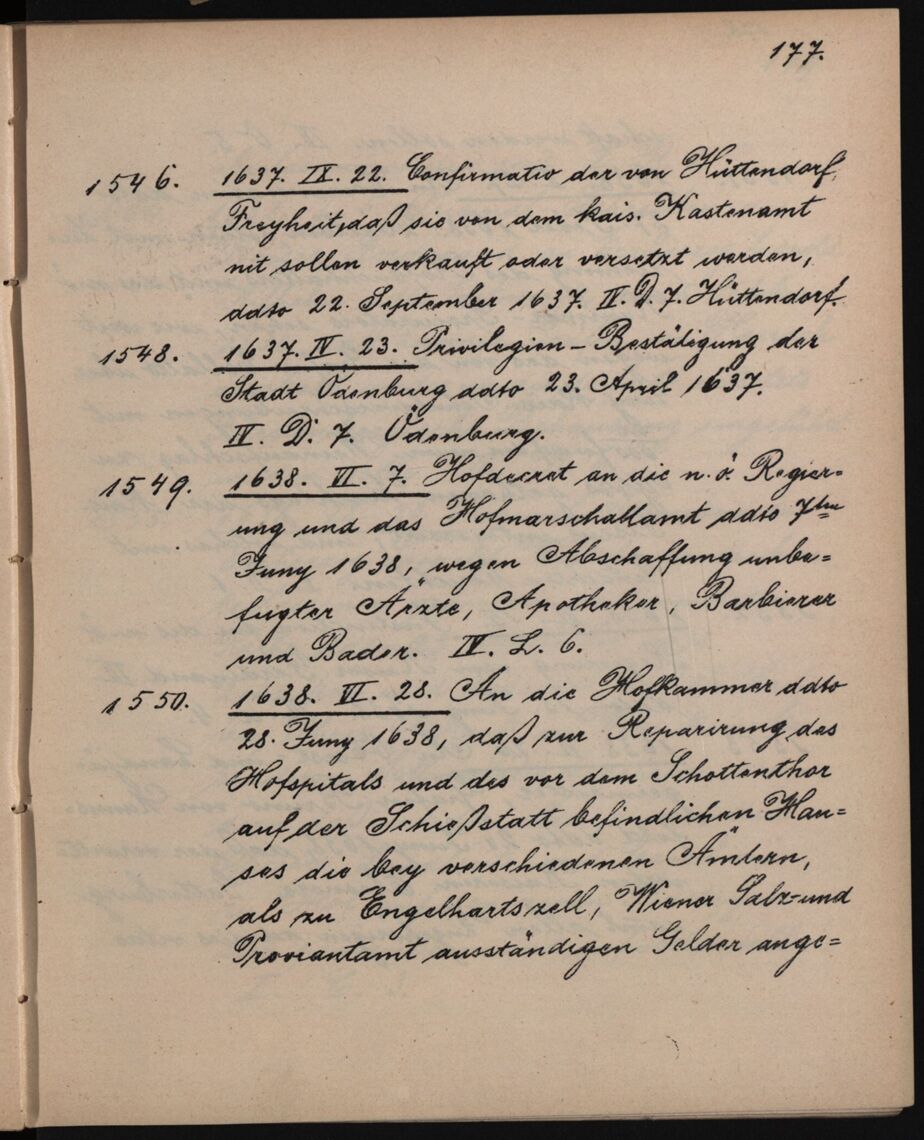 177.
1546. 1637. IX. 22. Confirmatio der von Hüttendorf
Freyheit, daß sie von dem kais. Kastenamt
nit sollen verkauft oder versetzt werden,
ddto 22. September 1637. IV. D. 7. Hüttendorf.
1548. 1637. IV. 23. Privilegien-Bestätigung der
Stadt Ödenburg ddto 23. April 1637.
IV. D. 7. Ödenburg.
1549. 1638. VI. 7. Hofdecret an die n. ö. Regier=
ung und das Hofmarschallamt ddto 7ten
Juny 1638, wegen Abschaffung unbe=
fugter Ärzte, Apotheker, Barbierer
und Bader. IV. L. 6.
1550. 1638. VI. 28. An die Hofkammer ddto
28. Juny 1638, daß zur Reparirung des
Hofspitals und des vor dem Schottenthor
auf der Schießstatt befindlichen Hau=
ses die bey verschiedenen Ämtern,
als zu Engelhartszell, Wiener Salz- und
Proviantamt ausständigen Gelder ange=